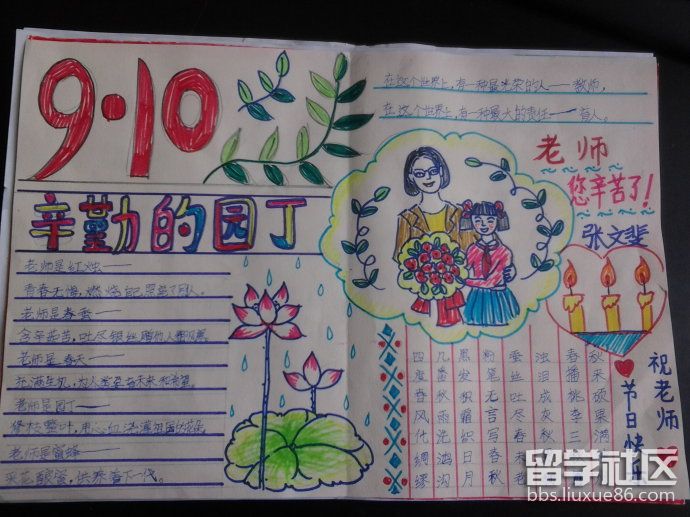 9·10
辛勤的园丁
老师是红烛——
青春无悔，燃烧自己照亮了同人。
老师是春蚕——
含辛茹苦，吐尽银丝
老师是春天——
充满生机，为人类带来未来和希望。
老师是园丁——
修枝整叶，用心血浇灌祖国的花朵。
老师是蜜蜂——
采花酿蜜，供养着下一代。
在这个世界上，有一种最光荣的人——教师，
在这个世界上，有一种最大的责任——育人。
老师
您辛苦了！
张文斐
祝老师
节日快乐
四几黑粉蚕浊春秋
度番发笔丝泪播采
春秋积无吐成桃硕
风雨霜言尽灰李果
化浇织写春秋三满
绸鸿日春
缪沟月秋
留学社区
bbs.liuxue86.com